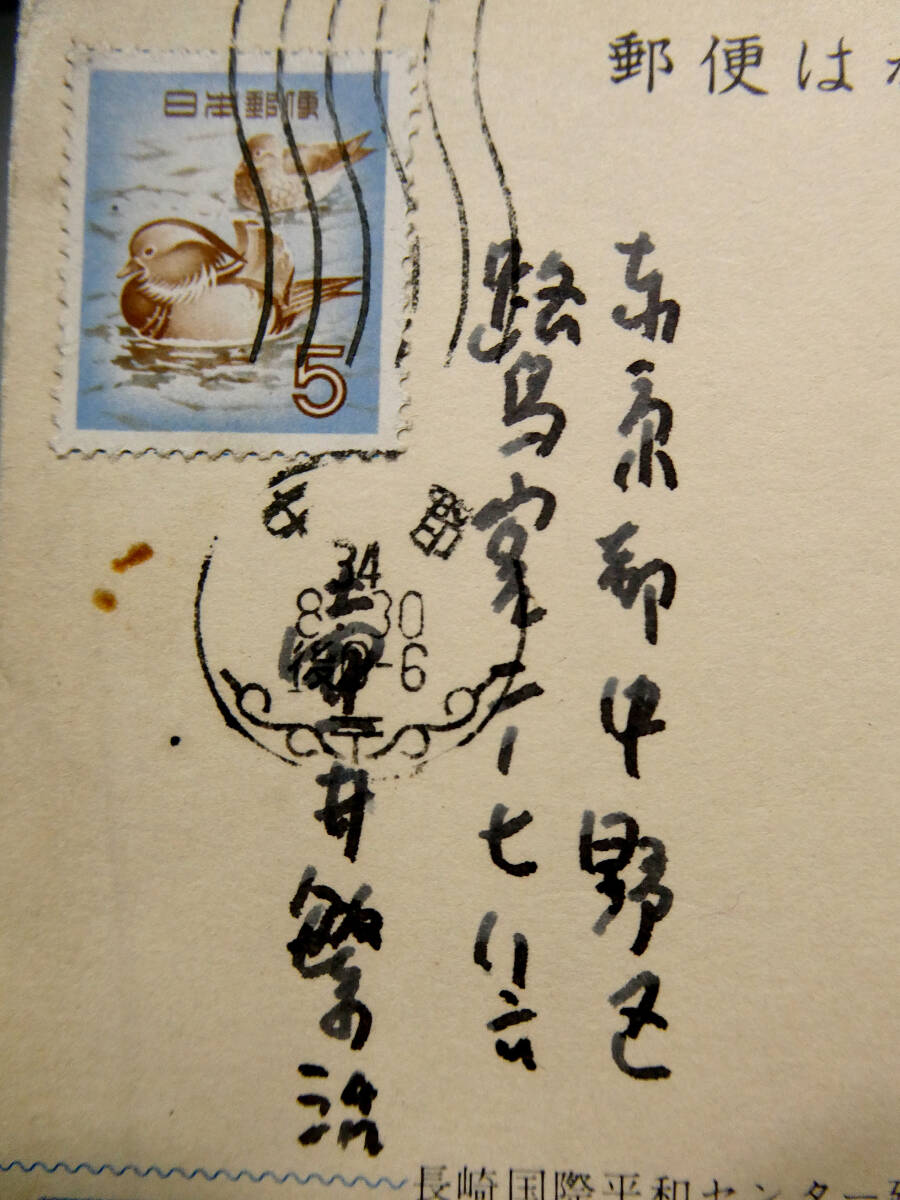 日本郵便
5
郵便は
東京都中野区
鷺宮二ノ七八六
壺井繁治
34
8.30
-6
長崎国際平和センター